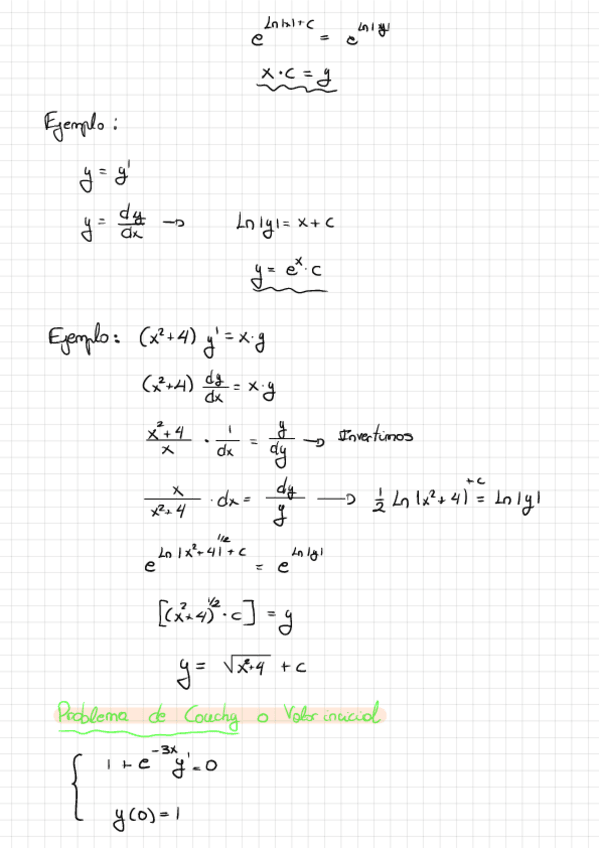 e^(Ln|x|+C) = e^(Ln|y|)
x·C = y
Ejemplo:
y = y'
y = dy/dx → Ln|y| = x + C
y = e^x·C
Ejemplo: (x²+4) y' = x·y
(x²+4) dy/dx = x·y
(x²+4)/x · 1/dx = y/dy → Invertimos
x/(x²+4) · dx = dy/y → 1/2 Ln|x²+4| +C = Ln|y|
e^(Ln|x²+4|^(1/2) + C) = e^(Ln|y|)
[(x²+4)^(1/2) · C] = y
y = √(x²+4) + C
Problema de Couchy o Valor inicial
1 + e^(-3x) y' = 0
y(0) = 1